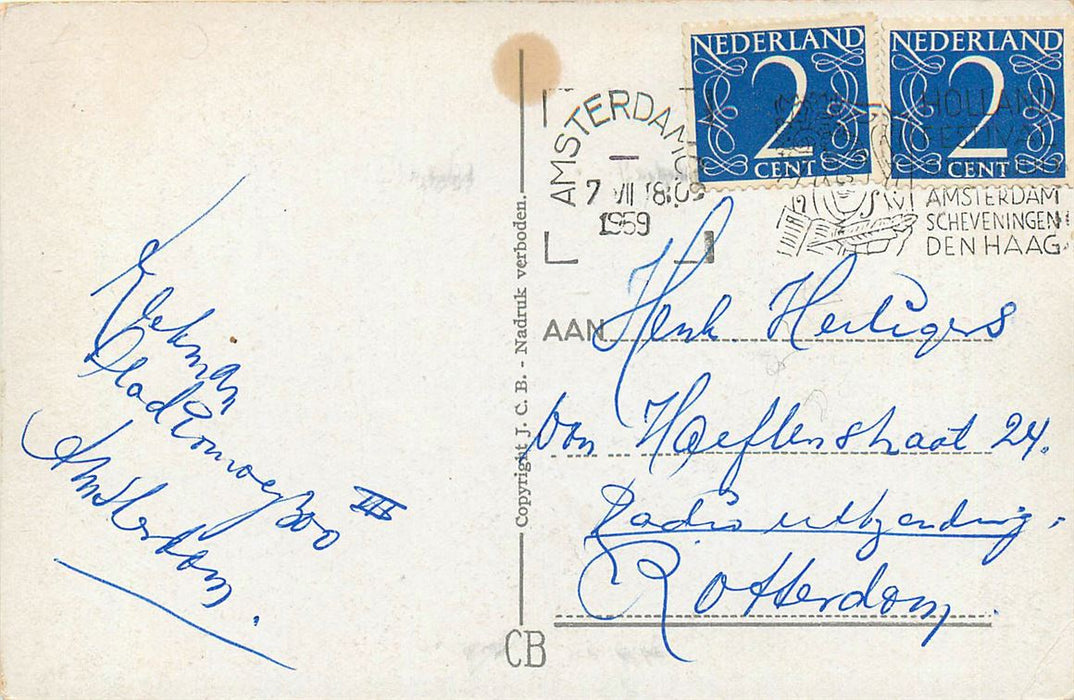 NEDERLAND
2
CENT
NEDERLAND
2
CENT
AMSTERDAM
7 VII 18
1959
HOLLAND
FESTIVAL
AMSTERDAM
SCHEVENINGEN
DEN HAAG
Kleknan
Stadionweg 300 III
Amsterdam.
Copyright J. C. B. - Nadruk verboden.
CB
AAN Henk Heiligers
Van 24.
Radio uitzending.
Rotterdam.